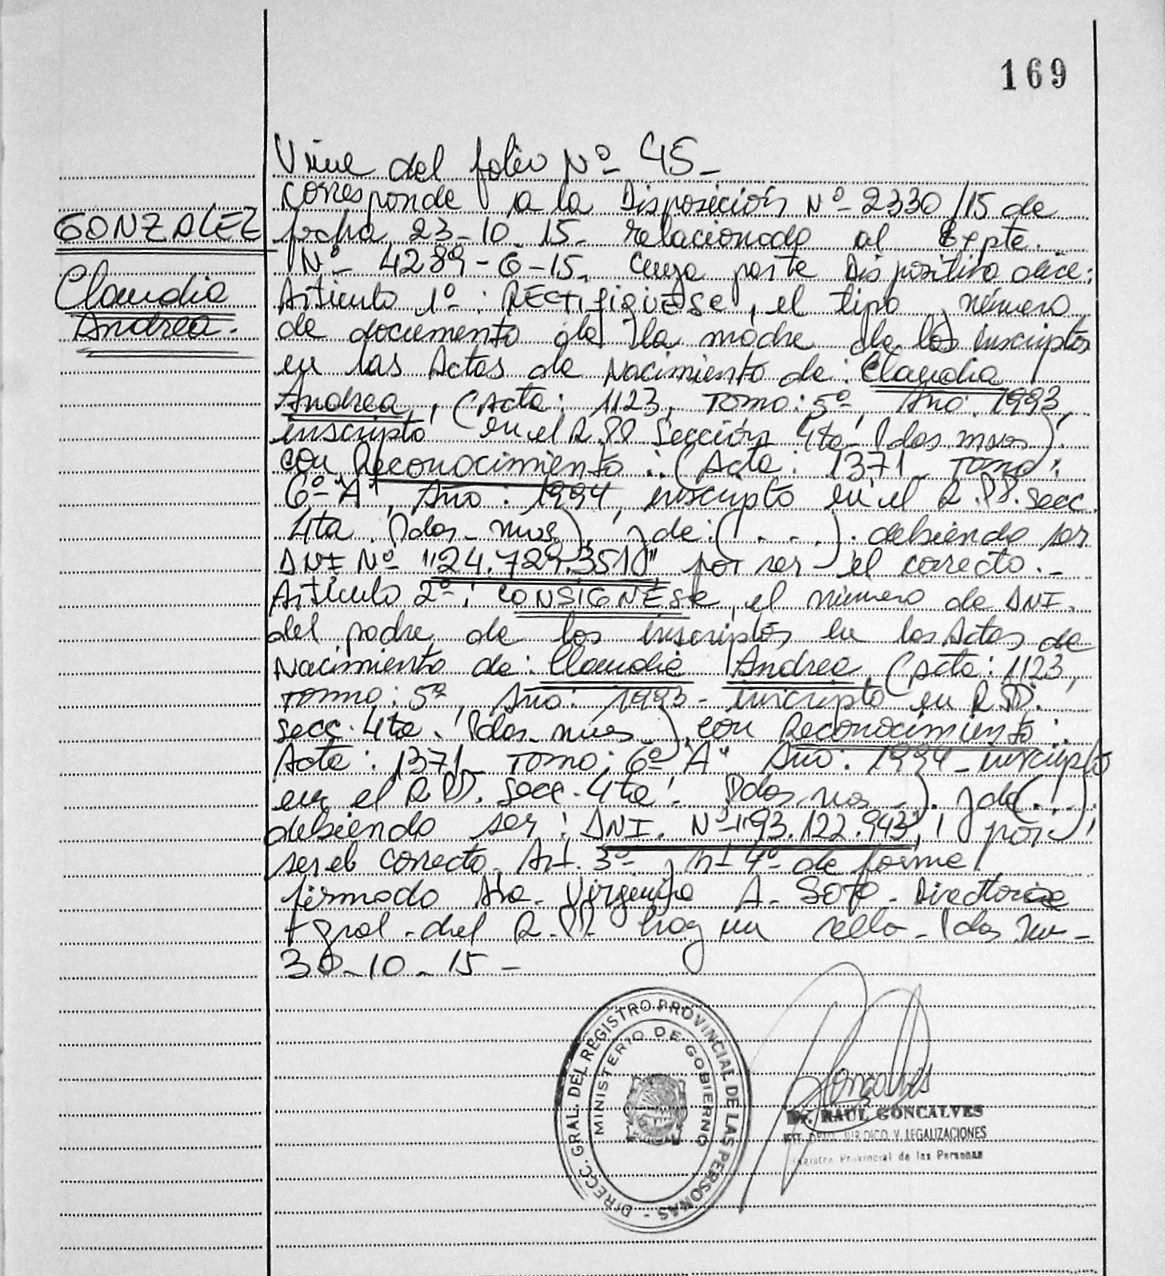 169
GONZALEZ
Claudia
Andrea.
Viene del folio Nº 45_
corresponde a la Disposición Nº 2330/15 de
fecha 23-10-15- relacionado al Expte.
Nº 4289-G-15. Cuya parte Dispositiva dice:
Artículo 1º: RECTIFIQUESE, el tipo y número
de documento de la madre de los inscriptos
en las Actas de Nacimiento de: Claudia
Andrea, (Acta: 1123, Tomo: 5º, Año: 1993,
inscripto en el R.PP Sección 4ta Pdas mnes).
con Reconocimiento: (Acta: 1371 Tomo:
6º "A", Año: 1994, inscripto en el R.PP. secc.
4ta. Pdas mnes), y de: (. . . .). debiendo ser
DNI Nº "24.729.351", por ser el correcto.-
Artículo 2º: CONSIGNESE, el número de DNI.
del padre de los inscriptos en las Actas de
Nacimiento de: Claudia Andrea, (Acta: 1123,
Tomo: 5º, Año: 1993- inscripto en R.PP.
secc. 4ta. Pdas mnes), con Reconocimiento:
Acta: 1371 Tomo: 6º "A" Año: 1994- inscripto
en el R.PP. Secc. 4ta. Pdas mnes). y de (...).
debiendo ser: DNI. Nº "93.122.943", por
ser el correcto. Art. 3º y Art 4º de forma
firmado Dra. Virginia A. Soto- Directora
Gral. del R.PP. hay un sello- Pdas Mnes-
30-10-15-
DIRECC. GRAL. DEL REGISTRO PROVINCIAL DE LAS PERSONAS -
MINISTERIO DE GOBIERNO
Goncalves
Dr. RAUL GONCALVES
DPTO. JURIDICO Y LEGALIZACIONES
Registro Provincial de las Personas